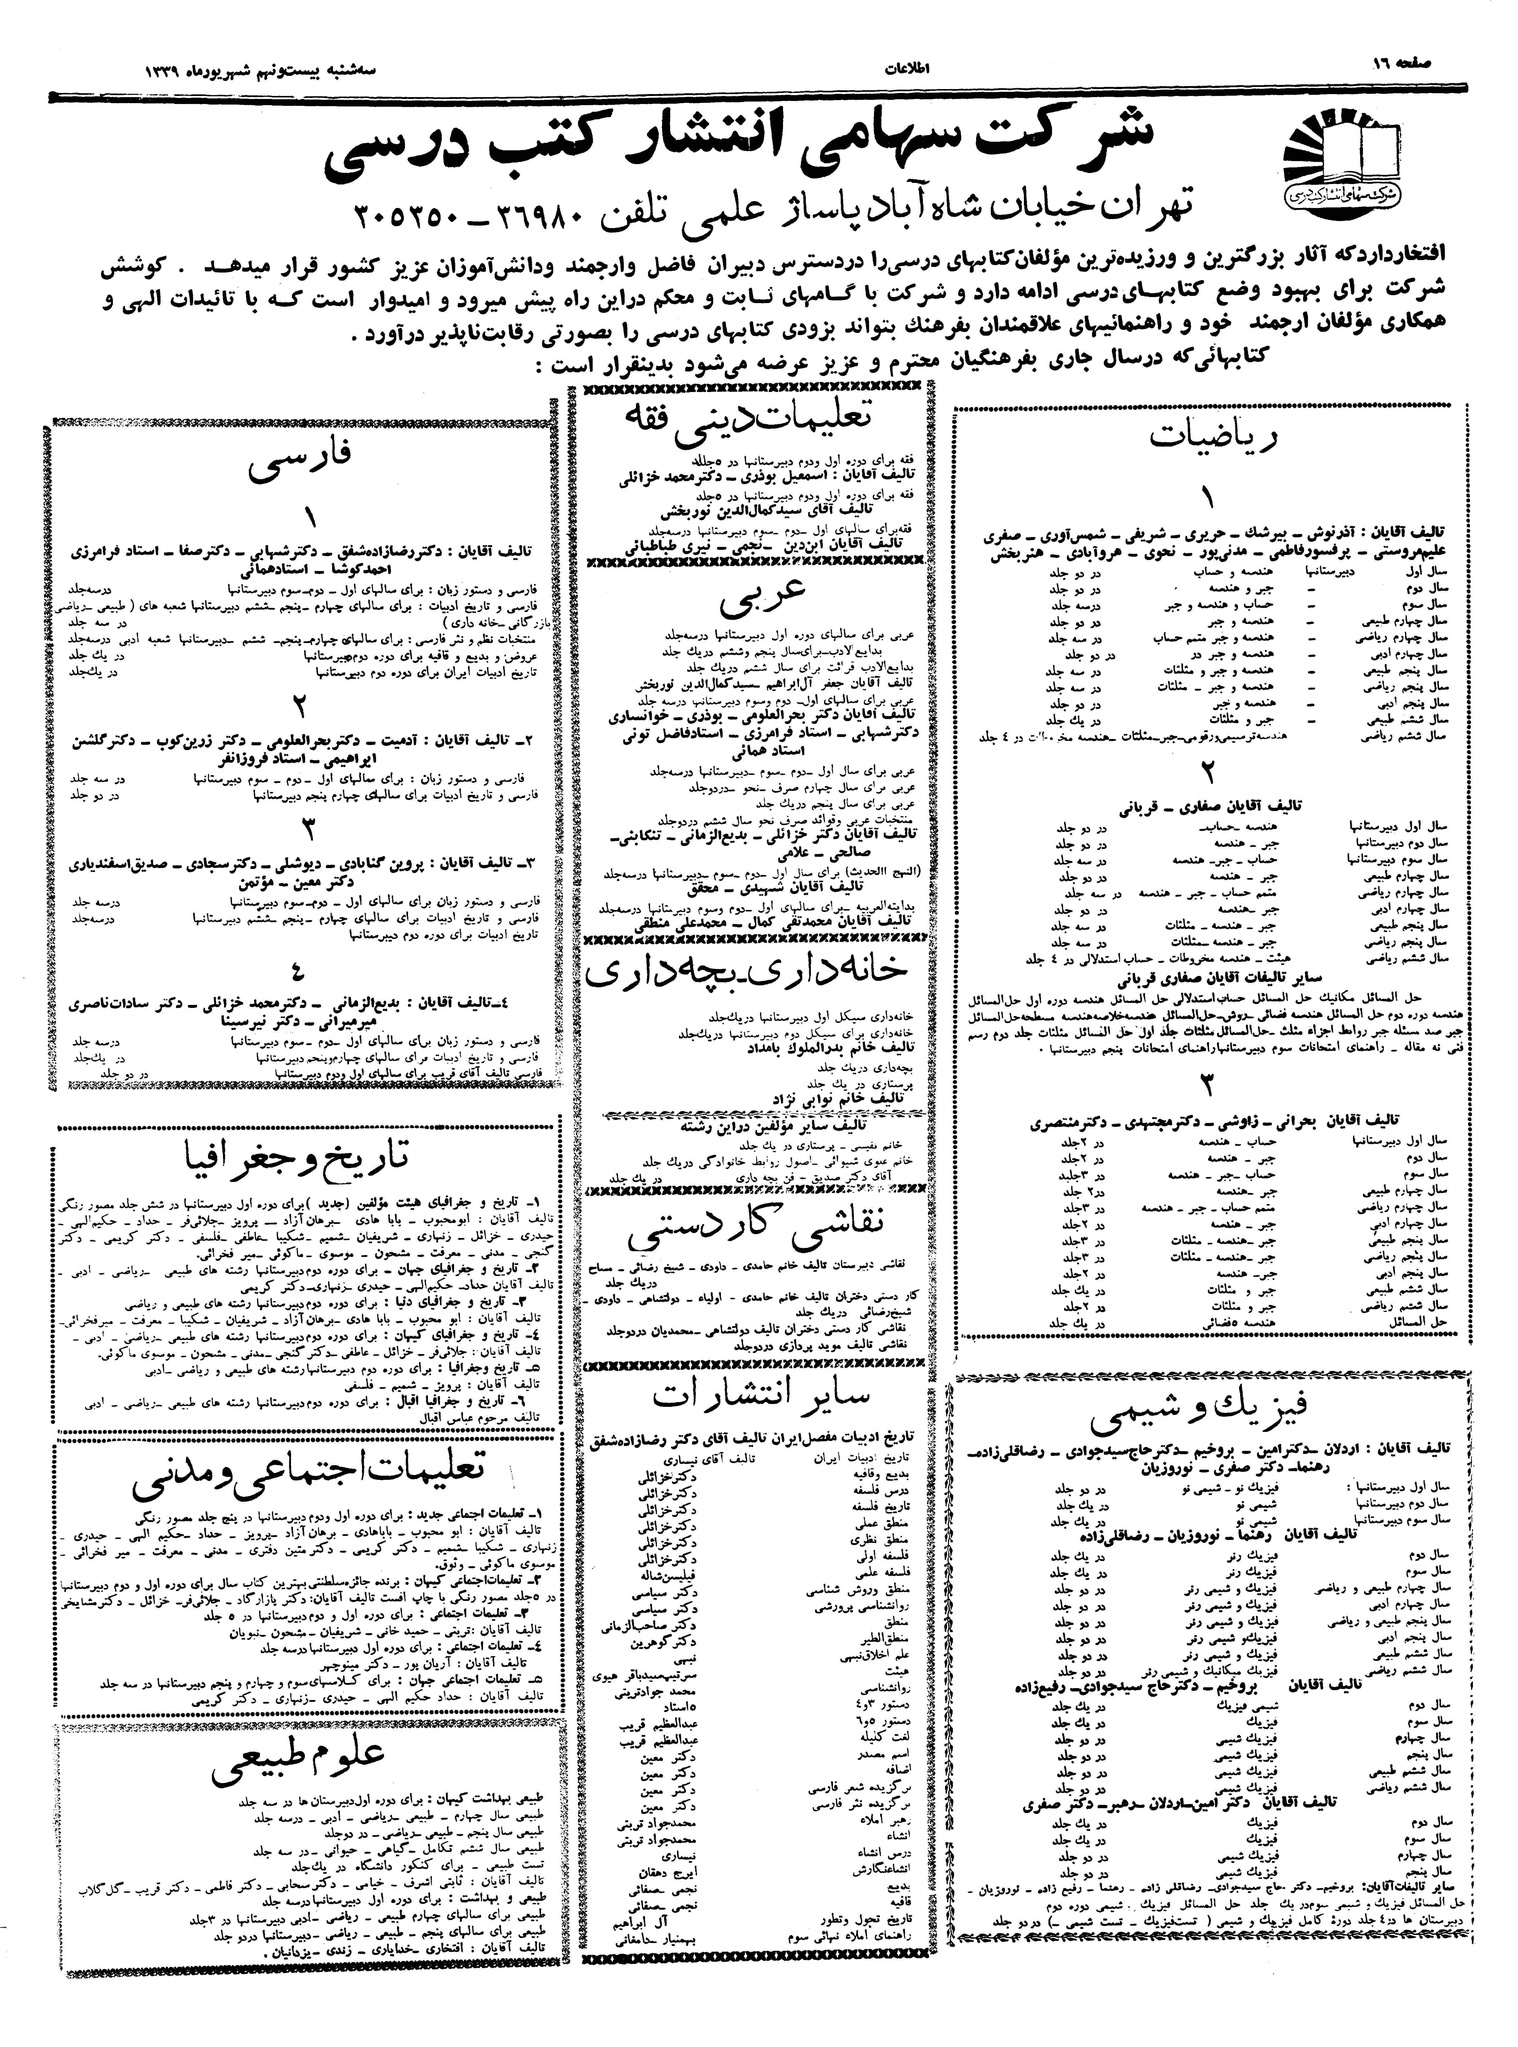 صفحه ١٦
اطلاعات
سه‌شنبه بیست‌ونهم شهریورماه ١٣٣٩
شرکت سهامی انتشار کتب درسی
شرکت سهامی انتشار کتب درسی
تهران خیابان شاه‌آباد پاساژ علمی تلفن ٣٦٩٨٠ – ٣٠٥٣٥٠
افتخار دارد که آثار بزرگترین و ورزیده‌ترین مؤلفان کتابهای درسی را در دسترس دبیران فاضل و ارجمند و دانش‌آموزان عزیز کشور قرار میدهد . کوشش
شرکت برای بهبود وضع کتابهای درسی ادامه دارد و شرکت با گامهای ثابت و محکم در این راه پیش میرود و امیدوار است که با تائیدات الهی و
همکاری مؤلفان ارجمند خود و راهنمائیهای علاقمندان بفرهنگ بتواند بزودی کتابهای درسی را بصورتی رقابت‌ناپذیر درآورد .
کتابهائی که در سال جاری بفرهنگیان محترم و عزیز عرضه می‌شود بدینقرار است :
ریاضیات
١
تالیف آقایان : آذرنوش – بیرشک – حریری – شریفی – شمس‌آوری – صفری
علیم‌مروستی – پرفسور فاطمی – مدنی‌پور – نحوی – هروآبادی – هنربخش
سال اول دبیرستانها هندسه و حساب در دو جلد
سال دوم – جبر و هندسه در دو جلد
سال سوم – حساب و هندسه و جبر در سه جلد
سال چهارم طبیعی – هندسه و جبر در دو جلد
سال چهارم ریاضی – هندسه و جبر متمم حساب در سه جلد
سال چهارم ادبی – هندسه و جبر در در دو جلد
سال پنجم طبیعی – هندسه و جبر و مثلثات در سه جلد
سال پنجم ریاضی – هندسه و جبر – مثلثات در سه جلد
سال پنجم ادبی – هندسه و جبر در دو جلد
سال ششم طبیعی – جبر و مثلثات در یک جلد
سال ششم ریاضی هندسه ترسیمی و رقومی – جبر – مثلثات – هندسه مخروطات در ٤ جلد
٢
تالیف آقایان صفاری – قربانی
سال اول دبیرستانها هندسه – حساب– در دو جلد
سال دوم دبیرستانها جبر – هندسه در دو جلد
سال سوم دبیرستانها حساب – جبر – هندسه در سه جلد
سال چهارم طبیعی جبر – هندسه در دو جلد
سال چهارم ریاضی متمم حساب – جبر – هندسه در سه جلد
سال چهارم ادبی جبر – هندسه در دو جلد
سال پنجم طبیعی جبر – هندسه – مثلثات در سه جلد
سال پنجم ریاضی جبر – هندسه – مثلثات در سه جلد
سال ششم ریاضی هیئت – هندسه مخروطات – حساب استدلالی در ٤ جلد
سایر تالیفات آقایان صفاری قربانی
حل المسائل مکانیک حل المسائل حساب استدلالی حل المسائل هندسه دوره اول حل‌المسائل
هندسه دوره دوم حل المسائل هندسه فضائی – روش – حل‌المسائل هندسه خلاصه هندسه مسطحه حل‌المسائل
جبر صد مسئله جبر روابط اجزاء مثلث – حل‌المسائل مثلثات جلد اول حل المسائل مثلثات جلد دوم رسم
فنی نه مقاله – راهنمای امتحانات سوم دبیرستانها راهنمای امتحانات پنجم دبیرستانها .
٣
تالیف آقایان بحرانی – زاوشی – دکتر مجتهدی – دکتر منتصری
سال اول دبیرستانها حساب – هندسه در ٢جلد
سال دوم جبر – هندسه در ٢جلد
سال سوم حساب – جبر – هندسه در ٣جلد
سال چهارم طبیعی جبر – هندسه در٢ جلد
سال چهارم ریاضی متمم حساب – جبر – هندسه در ٣جلد
سال چهارم ادبی جبر – هندسه در ٢جلد
سال پنجم طبیعی جبر – هندسه – مثلثات در ٣جلد
سال پنجم ریاضی جبر – هندسه – مثلثات در ٣جلد
سال پنجم ادبی جبر – هندسه در ٢جلد
سال ششم طبیعی جبر و مثلثات در یک جلد
سال ششم ریاضی جبر و مثلثات در ٢جلد
حل المسائل هندسه ٥ فضائی در یک جلد
فیزیک و شیمی
تالیف آقایان : اردلان – دکتر امین – بروخیم – دکتر حاج سیدجوادی – رضاقلی‌زاده–
رهنما – دکتر صفری – نوروزیان
سال اول دبیرستانها : فیزیک نو – شیمی نو در دو جلد
سال دوم دبیرستانها شیمی نو در یک جلد
سال سوم دبیرستانها شیمی نو در یک جلد
تالیف آقایان رهنما – نوروزیان – رضاقلی‌زاده
سال دوم فیزیک رنر در یک جلد
سال سوم فیزیک رنر در یک جلد
سال چهارم طبیعی و ریاضی فیزیک و شیمی رنر در دو جلد
سال چهارم ادبی فیزیک و شیمی رنر در دو جلد
سال پنجم طبیعی و ریاضی فیزیک و شیمی رنر در دو جلد
سال پنجم ادبی فیزیک و شیمی رنر در دو جلد
سال ششم طبیعی فیزیک و شیمی رنر در دو جلد
سال ششم ریاضی فیزیک میکانیک و شیمی رنر در دو جلد
تالیف آقایان بروخیم – دکتر حاج سیدجوادی – رفیع‌زاده
سال دوم شیمی فیزیک در یک جلد
سال سوم فیزیک در یک جلد
سال چهارم فیزیک شیمی در دو جلد
سال پنجم فیزیک شیمی در دو جلد
سال ششم طبیعی فیزیک شیمی در دو جلد
سال ششم ریاضی فیزیک شیمی در دو جلد
تالیف آقایان دکتر امین – اردلان – رهبر – دکتر صفری
سال دوم فیزیک در یک جلد
سال سوم فیزیک در یک جلد
سال چهارم فیزیک شیمی در دو جلد
سال پنجم فیزیک شیمی در دو جلد
سایر تالیفات آقایان: بروخیم – دکتر حاج سیدجوادی – رضاقلی زاده – رهنما – رفیع زاده – نوروزیان –
حل المسائل فیزیک و شیمی سوم در یک جلد حل المسائل فیزیک . شیمی دوره دوم
دبیرستان ها در٤ جلد دورهٔ کامل فیزیک و شیمی ( تست فیزیک – تست شیمی –) در دو جلد
تعلیمات دینی فقه
فقه برای دوره اول ودوم دبیرستانها در ٥جلد
تالیف آقایان : اسمعیل بوذری – دکتر محمد خزائلی
فقه برای دوره اول ودوم دبیرستانها در ٥جلد
تالیف آقای سیدکمال‌الدین نوربخش
فقه برای سالهای اول – دوم – سوم دبیرستانها در سه جلد
تالیف آقایان ابن‌دین – نجمی – نیری طباطبائی
عربی
عربی برای سالهای دوره اول دبیرستانها در سه جلد
بدایع‌الادب – برای سال پنجم وششم در یک جلد
بدایع‌الادب قرائت برای سال ششم در یک جلد
تالیف آقایان جعفر آل‌ابراهیم – سیدکمال‌الدین نوربخش
عربی برای سالهای اول– دوم وسوم دبیرستانها در سه جلد
تالیف آقایان دکتر بحرالعلومی – بوذری – خوانساری
دکتر شهابی – استاد فرامرزی – استاد فاضل تونی
استاد همائی
عربی برای سال اول – دوم – سوم – دبیرستانها در سه جلد
عربی برای سال چهارم صرف – نحو – در دو جلد
عربی برای سال پنجم در یک جلد
منتخبات عربی وقوائد صرف نحو سال ششم در دو جلد
تالیف آقایان دکتر خزائلی – بدیع‌الزمانی – تنکابنی–
صالحی – علامی
(النهج الحدیث) برای سال اول – دوم – سوم – دبیرستانها در سه جلد
تالیف آقایان شهیدی – محقق
بدایته‌العربیه – برای سالهای اول – دوم وسوم دبیرستانها در سه جلد
تالیف آقایان محمدتقی کمال – محمدعلی منطقی
خانه‌داری – بچه‌داری
خانه‌داری سیکل اول دبیرستانها در یک جلد
خانه‌داری برای سیکل دوم دبیرستانها در یک جلد
تالیف خانم بدرالملوک بامداد
بچه‌داری در یک جلد
پرستاری در یک جلد
تالیف خانم نوابی نژاد
تالیف سایر مؤلفین در این رشته
خانم نفیسی – پرستاری در یک جلد
خانم علوی شیوائی – اصول روابط خانوادگی در یک جلد
آقای دکتر صدیق – فن بچه داری در یک جلد
نقاشی کاردستی
نقاشی دبیرستان تالیف خانم حامدی – داودی – شیخ رضائی – مساح
در یک جلد
کار دستی دختران تالیف خانم حامدی – اولیاء – دولتشاهی – داودی –
شیخ‌رضائی در یک جلد
نقاشی کار دستی دختران تالیف دولتشاهی – محمدیان در دو جلد
نقاشی تالیف موید پردازی در دو جلد
سایر انتشارات
تاریخ ادبیات مفصل ایران تالیف آقای دکتر رضازاده شفق
تاریخ ادبیات ایران تالیف آقای نیساری
بدیع وقافیه دکتر خزائلی
درس فلسفه دکتر خزائلی
تاریخ فلسفه دکتر خزائلی
منطق عملی دکتر خزائلی
منطق نظری دکتر خزائلی
فلسفه اولی دکتر خزائلی
فلسفه علمی فیلیسن‌شاله
منطق وروش شناسی دکتر سیاسی
روانشناسی پرورشی دکتر سیاسی
منطق دکتر صاحب‌الزمانی
منطق‌الطیر دکتر گوهرین
علم اخلاق نبهی نبهی
هیئت سرتیپ سیدباقر هیوی
روانشناسی محمد جواد تربتی
دستور ٣و٤ ٥استاد
دستور ٥و٦ عبدالعظیم قریب
لغت کلیله عبدالعظیم قریب
اسم مصدر دکتر معین
اضافه دکتر معین
برگزیده شعر فارسی دکتر معین
برگزیده نثر فارسی دکتر معین
رهبر املاء محمدجواد تربتی
انشاء محمدجواد تربتی
درس انشاء نیساری
انشاء نگارش ایرج دهقان
بدیع نجمی – صفائی
قافیه نجمی – صفائی
تاریخ تحول وتطور آل ابراهیم
راهنمای املاء نهائی سوم بهمنیار – دامغانی
فارسی
١
تالیف آقایان : دکتر رضازاده شفق – دکتر شهابی – دکتر صفا – استاد فرامرزی
احمد کوشا – استاد همائی
فارسی و دستور زبان : برای سالهای اول – دوم – سوم دبیرستانها در سه جلد
فارسی و تاریخ ادبیات : برای سالهای چهارم – پنجم – ششم دبیرستانها شعبه های ( طبیعی – ریاضی
بازرگانی – خانه داری ) در سه جلد
منتخبات نظم و نثر فارسی : برای سالهای چهارم – پنجم – ششم – دبیرستانها شعبه ادبی در سه جلد
عروض و بدیع و قافیه برای دوره دوم دبیرستانها در یک جلد
تاریخ ادبیات ایران برای دوره دوم دبیرستانها در یک جلد
٢
٢– تالیف آقایان : آدمیت – دکتر بحرالعلومی – دکتر زرین‌کوب – دکتر گلشن
ابراهیمی – استاد فروزانفر
فارسی و دستور زبان : برای سالهای اول – دوم – سوم دبیرستانها در سه جلد
فارسی و تاریخ ادبیات برای سالهای چهارم پنجم دبیرستانها در دو جلد
٣
٣– تالیف آقایان : پروین گنابادی – دیوشلی – دکتر سجادی – صدیق اسفندیاری
دکتر معین – مؤتمن
فارسی و دستور زبان برای سالهای اول – دوم – سوم دبیرستانها در سه جلد
فارسی و تاریخ ادبیات برای سالهای چهارم – پنجم – ششم دبیرستانها در سه جلد
تاریخ ادبیات برای دوره دوم دبیرستانها
٤
٤– تالیف آقایان : بدیع‌الزمانی – دکتر محمد خزائلی – دکتر سادات ناصری
میرمیرانی – دکتر نیرسینا
فارسی و دستور زبان برای سالهای اول – دوم – سوم دبیرستانها در سه جلد
فارسی و تاریخ ادبیات برای سالهای چهارم و پنجم دبیرستانها در یک جلد
فارسی تالیف آقای قریب برای سالهای اول ودوم دبیرستانها در دو جلد
تاریخ و جغرافیا
١– تاریخ و جغرافیای هیئت مؤلفین (جدید ) برای دوره اول دبیرستانها در شش جلد مصور رنگی
تالیف آقایان : ابو محبوب – بابا هادی – برهان‌آزاد – پرویز – جلائی‌فر – حداد – حکیم‌الهی –
حیدری – خزائل – زنهاری – شریفیان – شمیم – شکیبا – عاطفی – فلسفی – دکتر کریمی – دکتر
گنجی – مدنی – معرفت – مشحون – موسوی – ماکوئی – میر فخرائی.
٢– تاریخ و جغرافیای جهان – برای دوره دوم دبیرستانها رشته های طبیعی – ریاضی – ادبی –
تالیف آقایان حداد – حکیم‌الهی – حیدری – زنهاری – دکتر کریمی
٣– تاریخ و جغرافیای دنیا : برای دوره دوم دبیرستانها رشته های طبیعی و ریاضی
تالیف آقایان : ابو محبوب – بابا هادی – برهان‌آزاد – شریفیان – شکیبا – معرفت – میرفخرائی.
٤– تاریخ و جغرافیای کیهان : برای دوره دوم دبیرستانها رشته های طبیعی – ریاضی – ادبی –
تالیف آقایان : جلائی‌فر – خزائل – عاطفی – دکتر گنجی – مدنی – مشحون – موسوی ماکوئی.
٥– تاریخ وجغرافیا : برای دوره دوم دبیرستانها رشته های طبیعی و ریاضی – ادبی
تالیف آقایان : پرویز – شمیم – فلسفی
٦– تاریخ و جغرافیا اقبال : برای دوره دوم دبیرستانها رشته های طبیعی – ریاضی – ادبی
تالیف مرحوم عباس اقبال
تعلیمات اجتماعی و مدنی
١– تعلیمات اجتماعی جدید : برای دوره اول ودوم دبیرستانها در پنج جلد مصور رنگی
تالیف آقایان : ابو محبوب – باباهادی – برهان آزاد – پرویز – حداد – حکیم الهی – حیدری –
زنهاری – شکیبا – شمیم – دکتر کریمی – دکتر متین دفتری – مدنی – معرفت – میر فخرائی –
موسوی ماکوئی – وثوق.
٢– تعلیمات اجتماعی کیهان : برنده جائزه سلطنتی بهترین کتاب سال برای دوره اول و دوم دبیرستانها
در ٥جلد مصور رنگی با چاپ افست تالیف آقایان: دکتر بازارگاد – جلائی‌فر – خزائل – دکتر مشایخی
٣– تعلیمات اجتماعی : برای دوره اول و دوم دبیرستانها در ٥ جلد
تالیف آقایان : تربتی – حمید خانی – شریفیان – مشحون – نبویان
٤– تعلیمات اجتماعی : برای دوره اول دبیرستانها در سه جلد
تالیف آقایان : آریان پور – دکتر مینوچهر
٥– تعلیمات اجتماعی جهان : برای کلاسهای سوم و چهارم و پنجم دبیرستانها در سه جلد
تالیف آقایان : حداد حکیم الهی – حیدری – زنهاری – دکتر کریمی
علوم طبیعی
طبیعی بهداشت کیهان : برای دوره اول دبیرستان ها در سه جلد
طبیعی سال چهارم – طبیعی – ریاضی – ادبی – در سه جلد
طبیعی سال پنجم – طبیعی – ریاضی – در دو جلد
طبیعی سال ششم تکامل – گیاهی – حیوانی – در سه جلد
تست طبیعی – برای کنکور دانشگاه در یک جلد
تالیف آقایان : ثابتی اشرف – خیامی – دکتر سحابی – دکتر فاطمی – دکتر قریب – گل‌گلاب
طبیعی و بهداشت : برای دوره اول دبیرستانها در سه جلد
طبیعی برای سالهای چهارم طبیعی – ریاضی – ادبی دبیرستانها در ٣جلد
طبیعی برای سالهای پنجم – طبیعی – ریاضی – دبیرستانها در دو جلد
تالیف آقایان : افتخاری – خدایاری – زندی – یزدانیان .